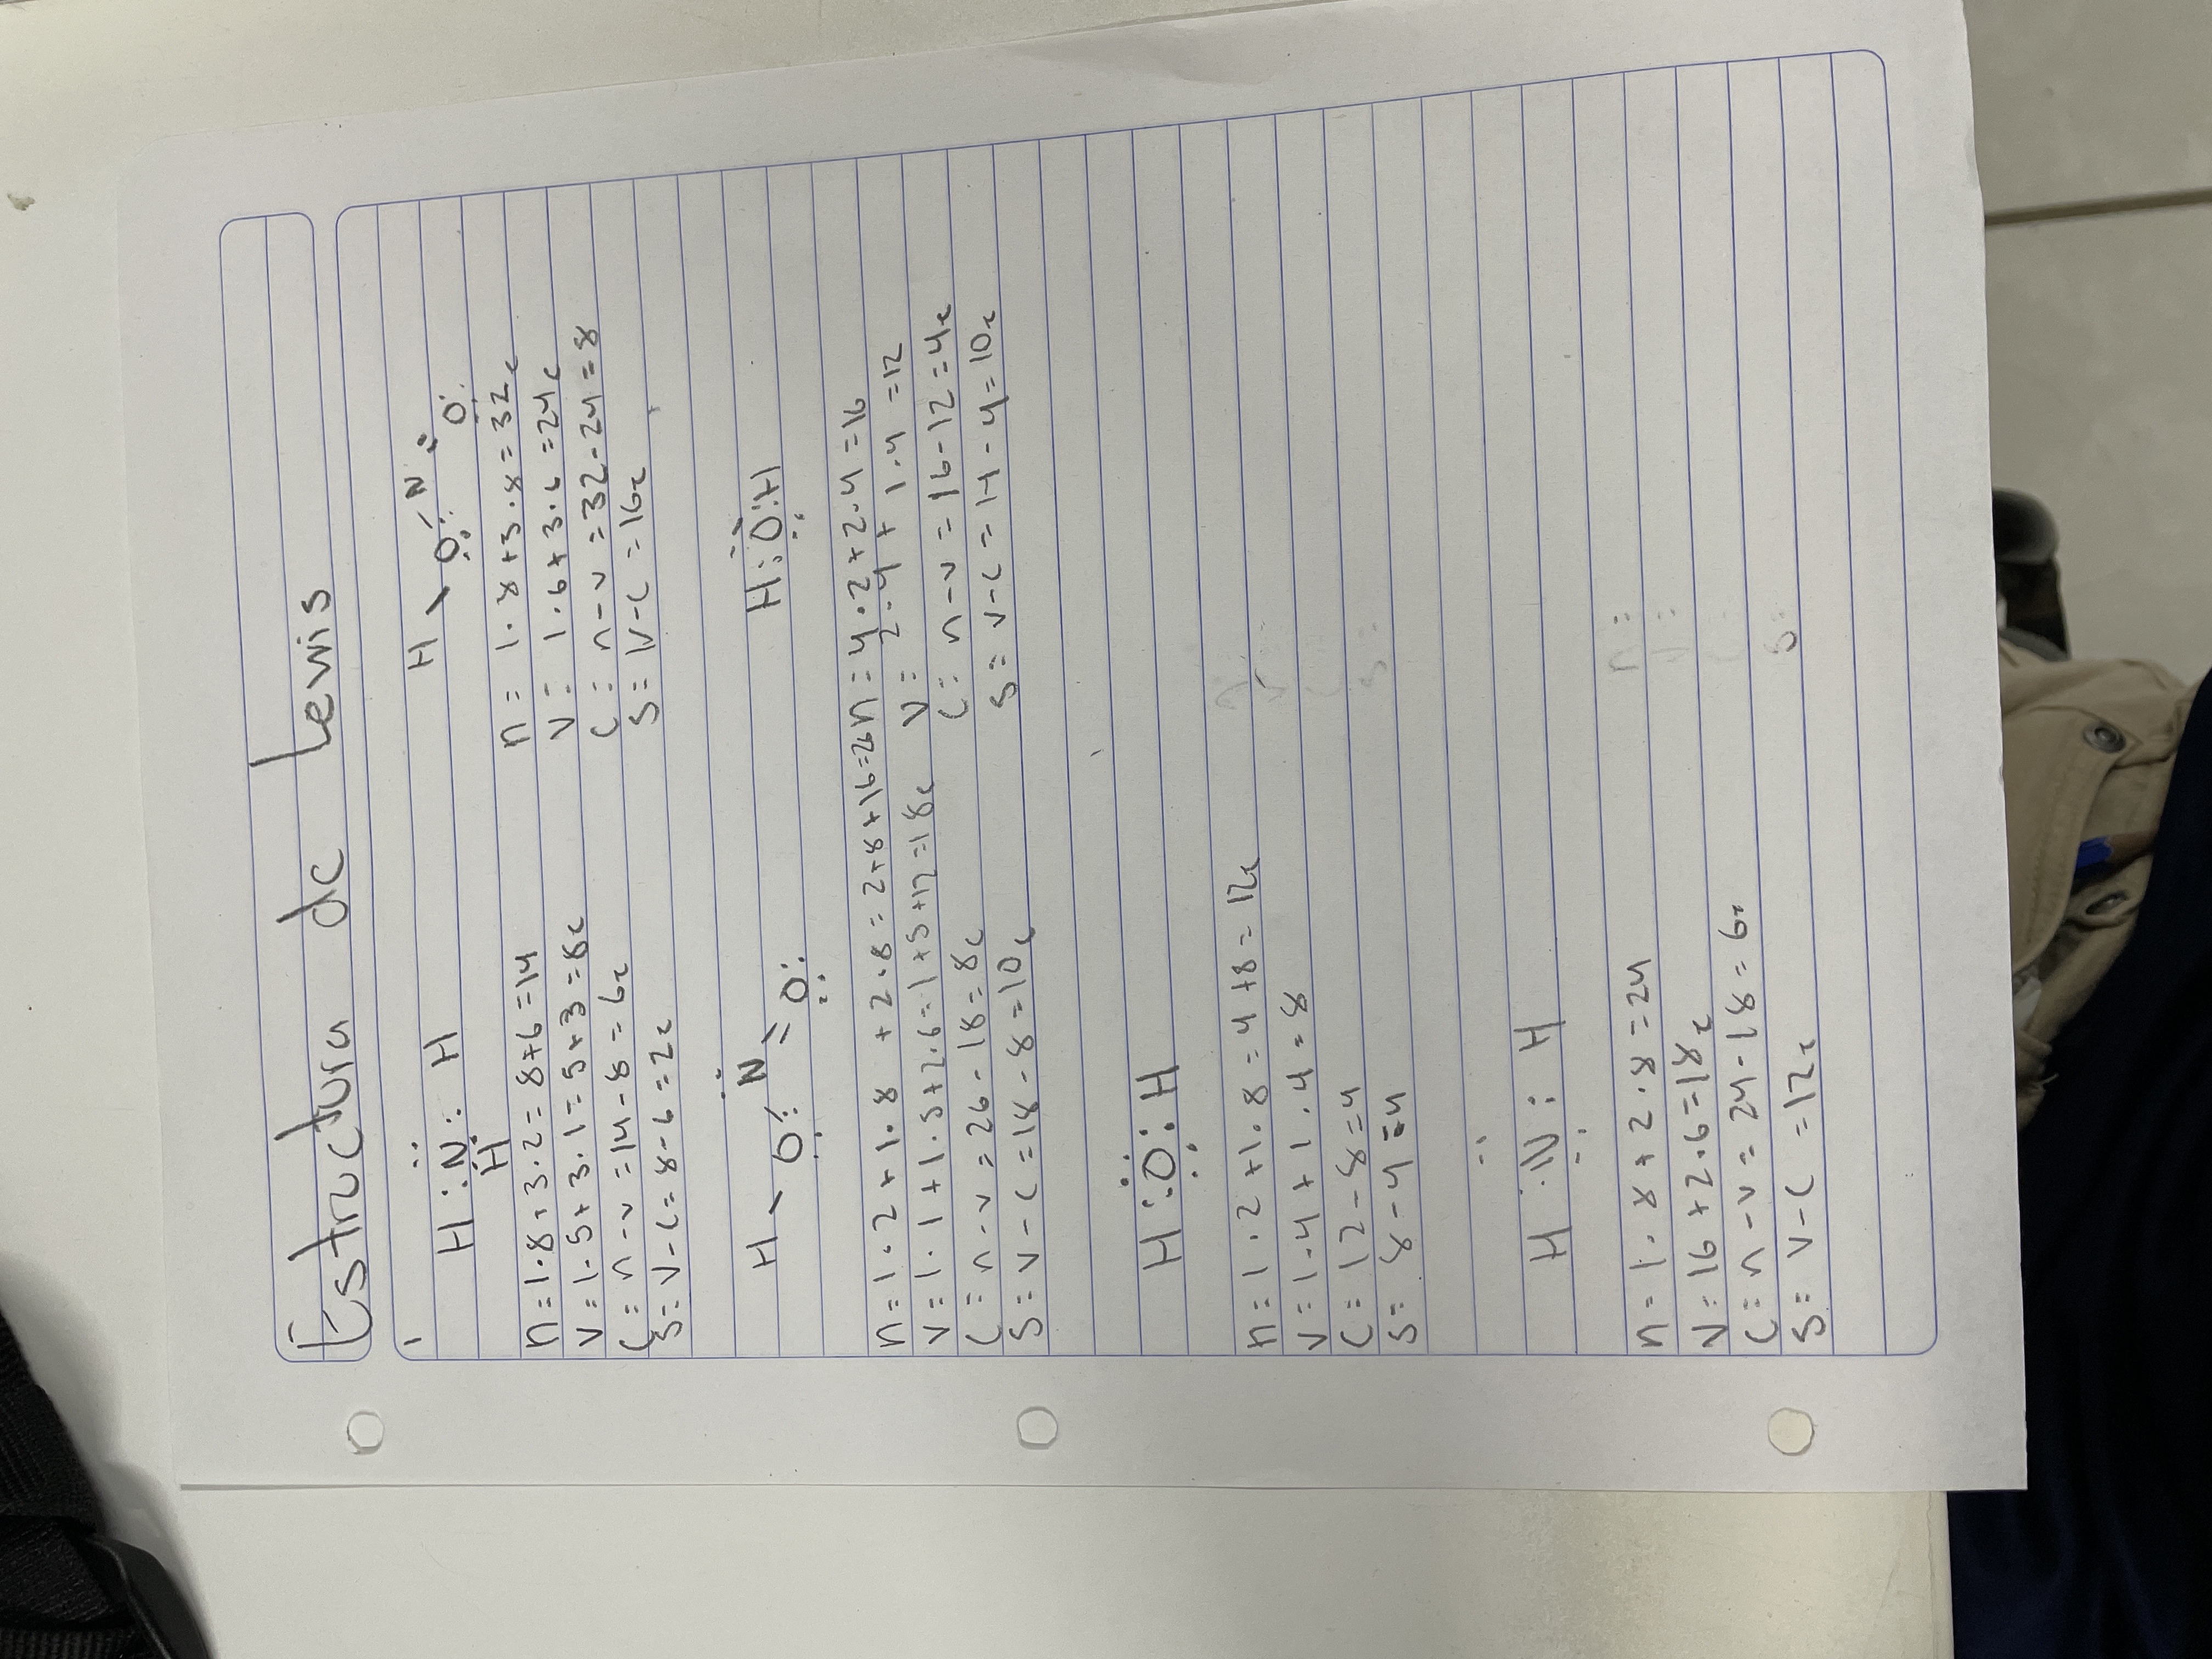 Estructura de Lewis
H : N : H
H
n = 1·8+3·2 = 8+6 = 14
v = 1·5+3·1 = 5+3 = 8e
C = n-v = 14-8 = 6e
S = v-c = 8-6 = 2e
H - O - N = O:
n = 1·8+3·8 = 32e
v = 1·6+3·6 = 24e
C = n-v = 32-24 = 8
S = v-c = 16e
H - O - N = O:
n = 1·2+1·8+2·8 = 2+8+16 = 26
v = 1·1+1·5+2·6 = 1+5+12 = 18e
C = n-v = 26-18 = 8e
S = v-c = 18-8 = 10e
H : O : H
n = 4·2+2·4 = 16
v = 2·4+1·4 = 12
C = n-v = 16-12 = 4e
S = v-c = 14-4 = 10e
H : O : H
n = 1·2+1·8 = 4+8 = 12e
v = 1·4+1·4 = 8
C = 12-8 = 4
S = 8-4 = 4
H : N : H
n = 1·8+2·8 = 24
v = 16+2·6 = 18e
C = n-v = 24-18 = 6e
S = v-c = 12e